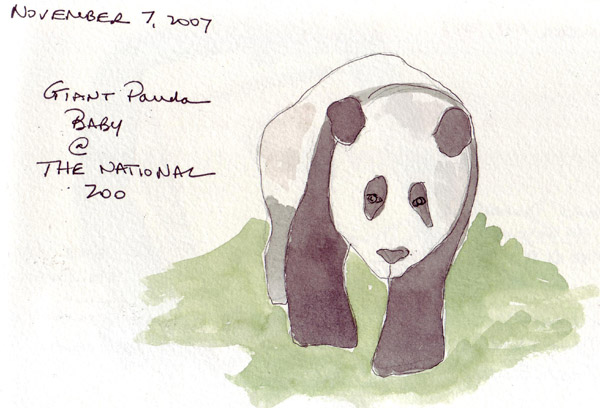 NOVEMBER 7, 2007
GIANT Panda
BABY
@
THE NATIONAL
ZOO